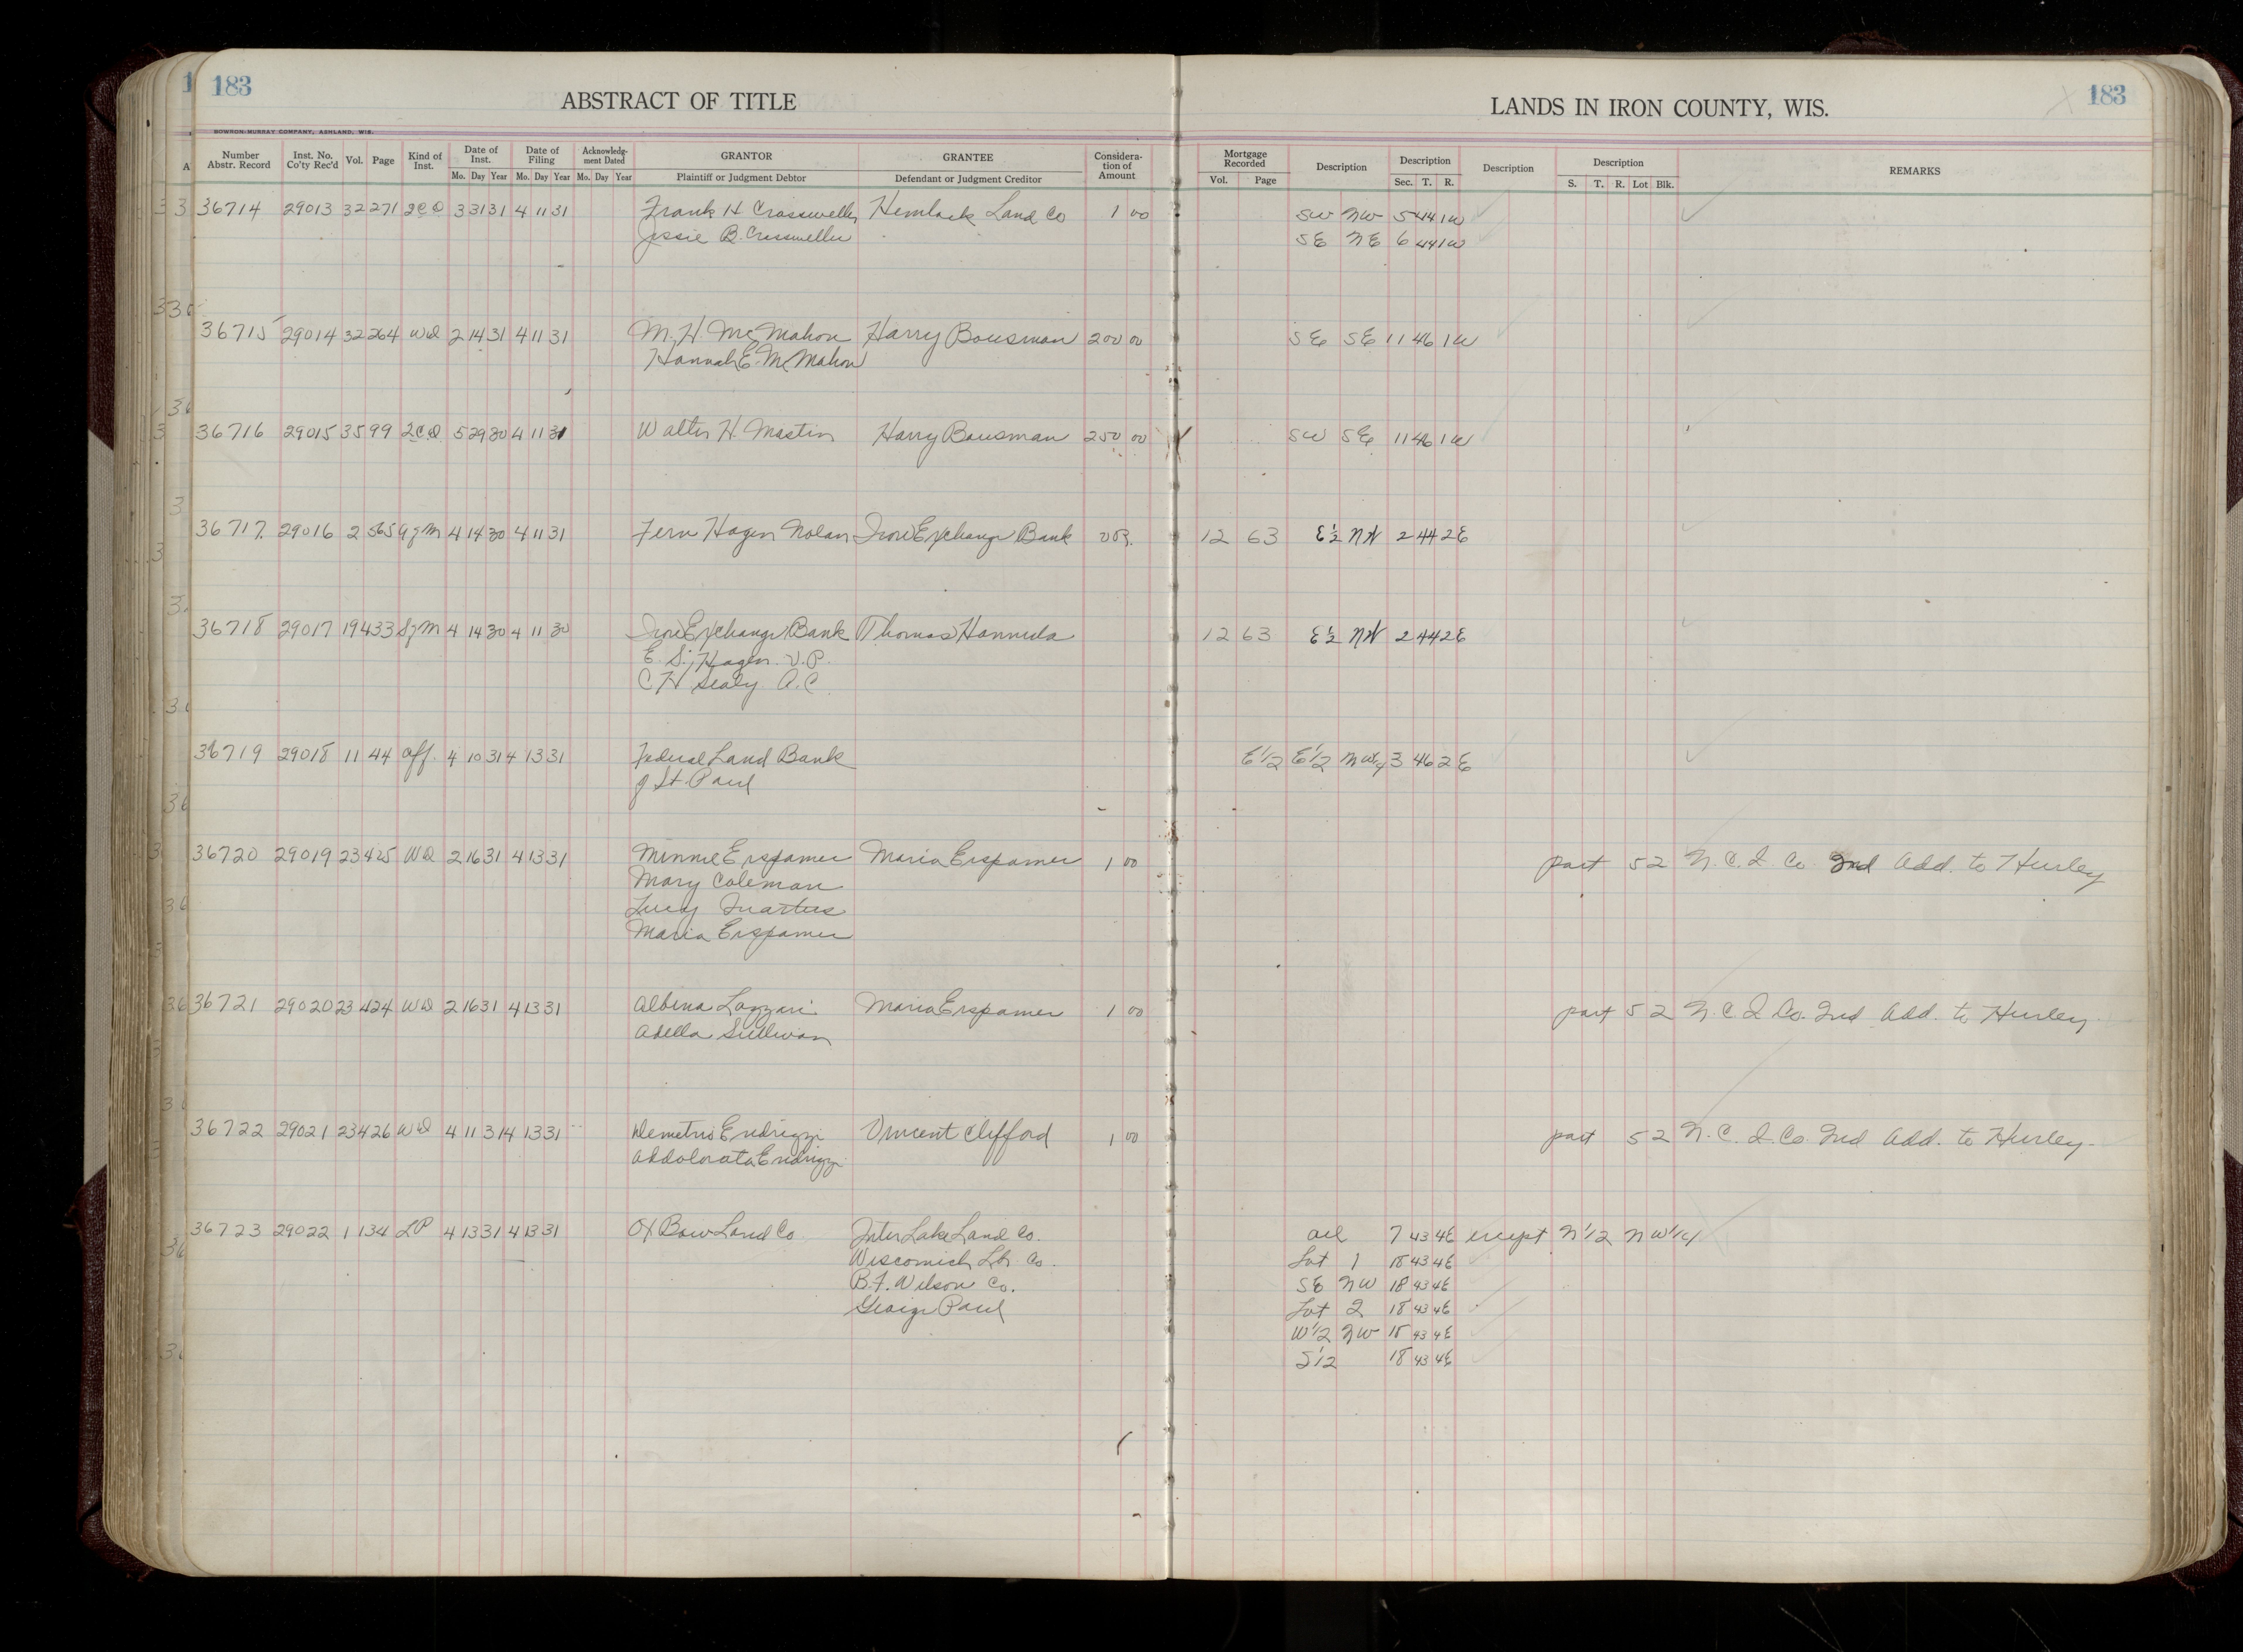 183
ABSTRACT OF TITLE
LANDS IN IRON COUNTY, WIS.
183
BOWRON-MURRAY COMPANY, ASHLAND, WIS.
Number Abstr. Record Inst. No. Co'ty Rec'd Vol. Page Kind of Inst. Date of Inst. Mo. Day Year Date of Filing Mo. Day Year Acknowledg-ment Dated Mo. Day Year GRANTOR Plaintiff or Judgment Debtor GRANTEE Defendant or Judgment Creditor Considera-tion of Amount Mortgage Recorded Vol. Page Description Description Sec. T. R. Description Description S. T. R. Lot Blk. REMARKS
36714 29013 32 271 2CD 3 31 31 4 11 31 Frank H Crassweller Hemlock Land Co 1 00 SW NW 5 44 1W
Jessie B. Crassweller SE NE 6 44 1W
36715 29014 32 264 WD 2 14 31 4 11 31 M. H. McMahon Harry Bousman 200 00 SE SE 11 46 1W
Hannah E. McMahon
36716 29015 35 99 2CD 5 29 30 4 11 31 Walter H. Mastin Harry Bousman 250 00 SW SE 11 46 1W
36717 29016 2 565 4 14 30 4 11 31 Fern Hagen Nolan Iron Exchange Bank 12 63 E½ NW 2 44 2E
36718 29017 19 433 SgM 4 14 30 4 11 30 Iron Exchange Bank Thomas Hannula 12 63 E½ NW 2 44 2E
E. S. Hagen V.P.
C H Sealy A.C.
36719 29018 11 44 Aff. 4 10 31 4 13 31 Federal Land Bank E1/2 E1/2 NW¼ 3 46 2E
of St. Paul
36720 29019 23 425 WD 2 16 31 4 13 31 Minnie Erspamer Maria Erspamer 1 00 part 52 N.C.I. Co 2nd Add. to Hurley
Mary Coleman
Lucy
Maria Erspamer
36721 29020 23 424 WD 2 16 31 4 13 31 Albina Lazzari Maria Erspamer 1 00 part 52 N.C I Co. 2nd Add. to Hurley
Adella Sullivan
36722 29021 23 426 WD 4 11 31 4 13 31 Demetrio Endrizzi Vincent Clifford 1 00 part 52 N.C. I. Co. 2nd Add. to Hurley
Addolorata Endrizzi
36723 29022 1 134 LP 4 13 31 4 13 31 Ox Bow Land Co Inter Lake Land Co. all 7 43 4E except N1/2 NW1/4
Wisconmich Lbr Co. Lot 1 18 43 4E
B. F. Wilson Co. SE NW 18 43 4E
George Paul Lot 2 18 43 4E
W1/2 NW 18 43 4E
S1/2 18 43 4E